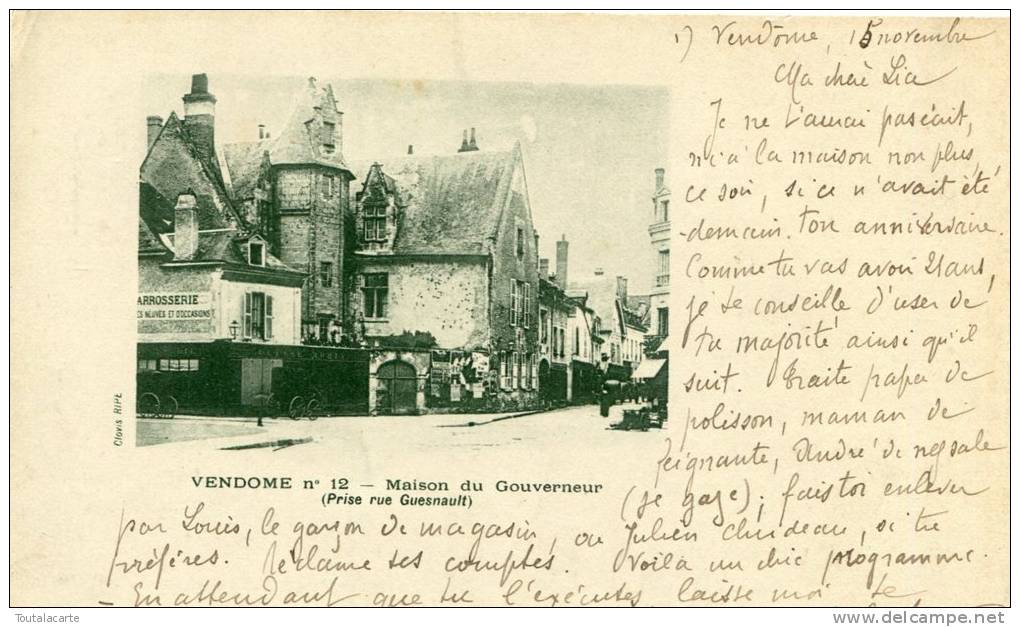 1) Vendôme, 15 novembre
Ma chère Lia
Je ne t'aurai pas écrit,
n'i à la maison non plus,
ce soir, si ce n'avait été
demain ton anniversaire.
Comme tu vas avoir 21 ans,
je te conseille d'user de
ta majorité ainsi qu'il
suit. Traite papa de
polisson, maman de
feignante, André de
(je gaze); fais toi enlever
par Louis, le garçon de magasin, ou Julien si tu
préfères. Réclame tes comptes. Voilà un chic programme.
- En attendant que tu l'exécutes, laisse moi te
ARROSSERIE
ES NEUVES ET D'OCCASIONS
Clovis RIPÉ
VENDOME n° 12 – Maison du Gouverneur
(Prise rue Guesnault)
Toutalacarte
www.delcampe.net